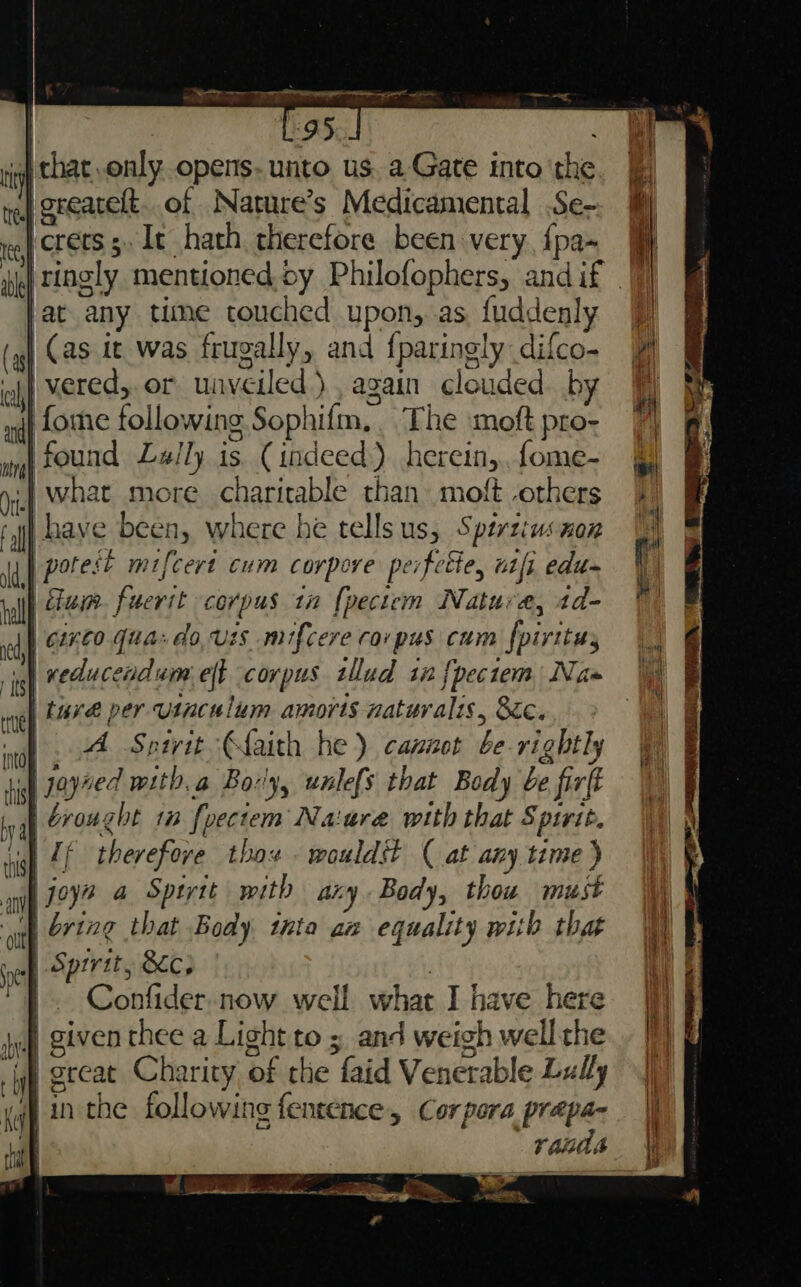 [95.]
that only opens unto us a Gate into the
greatest of Nature's Medicamental Se-
crets; It hath therefore been very spa-
ringly mentioned by Philosophers, and if
at any time touched upon, as suddenly
(as it was frugally, and sparingly disco-
vered, or unveiled) again clouded by
some following Sophism. The most pro-
found Lully is (indeed) herein, some-
what more charitable than most others
have been, where he tells us, Spiritus non
potest misceri cum corpore perfecte, nisi edu-
ctum fuerit corpus in speciem Naturæ, id-
circo quando vis miscere corpus cum spiritu,
reducendum est corpus illud in speciem Na-
turæ per vinculum amoris naturalis, &c.
A Spirit (saith he) cannot be rightly
joyned with a Body, unless that Body be first
brought in speciem Naturæ with that Spirit.
If therefore thou wouldst (at any time)
joyn a Spirit with any Body, thou must
bring that Body into an equality with that
Spirit, &c.
Consider now well what I have here
given thee a Light to; and weigh well the
great Charity of the said Venerable Lully
in the following sentence, Corpora præpa-
randa